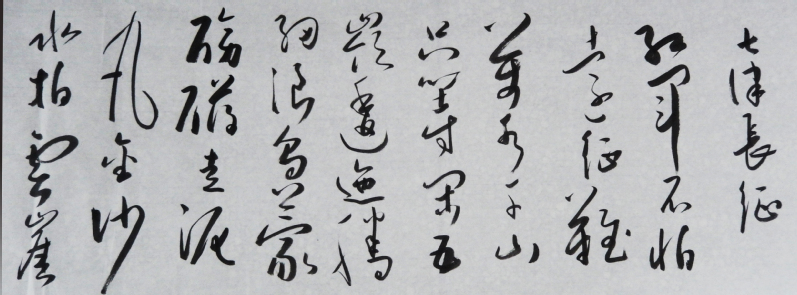 七律長征
紅軍不怕
遠征難
萬水千山
只等閑五
嶺逶迤騰
細浪烏蒙
磅礴走泥
丸金沙
水拍雲崖